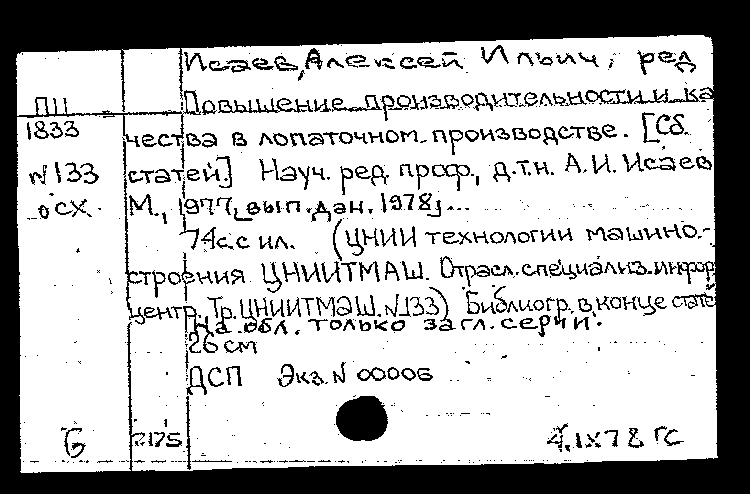 Исаев, Алексей Ильич, ред
ПII Повышение производительности и ка
1833 чества в лопаточном производстве. [Сб.
N133 статей] Науч. ред. проф., д.т.н. А.И. Исаев
осх. М., 1977, вып. дан. 1978, ...
74с. с ил. (ЦНИИ технологии машино-
строения ЦНИИТМАШ. Отрасл. специализ. инфор
центр. Тр. ЦНИИТМАШ. N133) Библиогр. в конце статей
На обл. только загл. серии.
26 см
ДСП Экз. N 00006
Б 2175 4.IX78 ГС